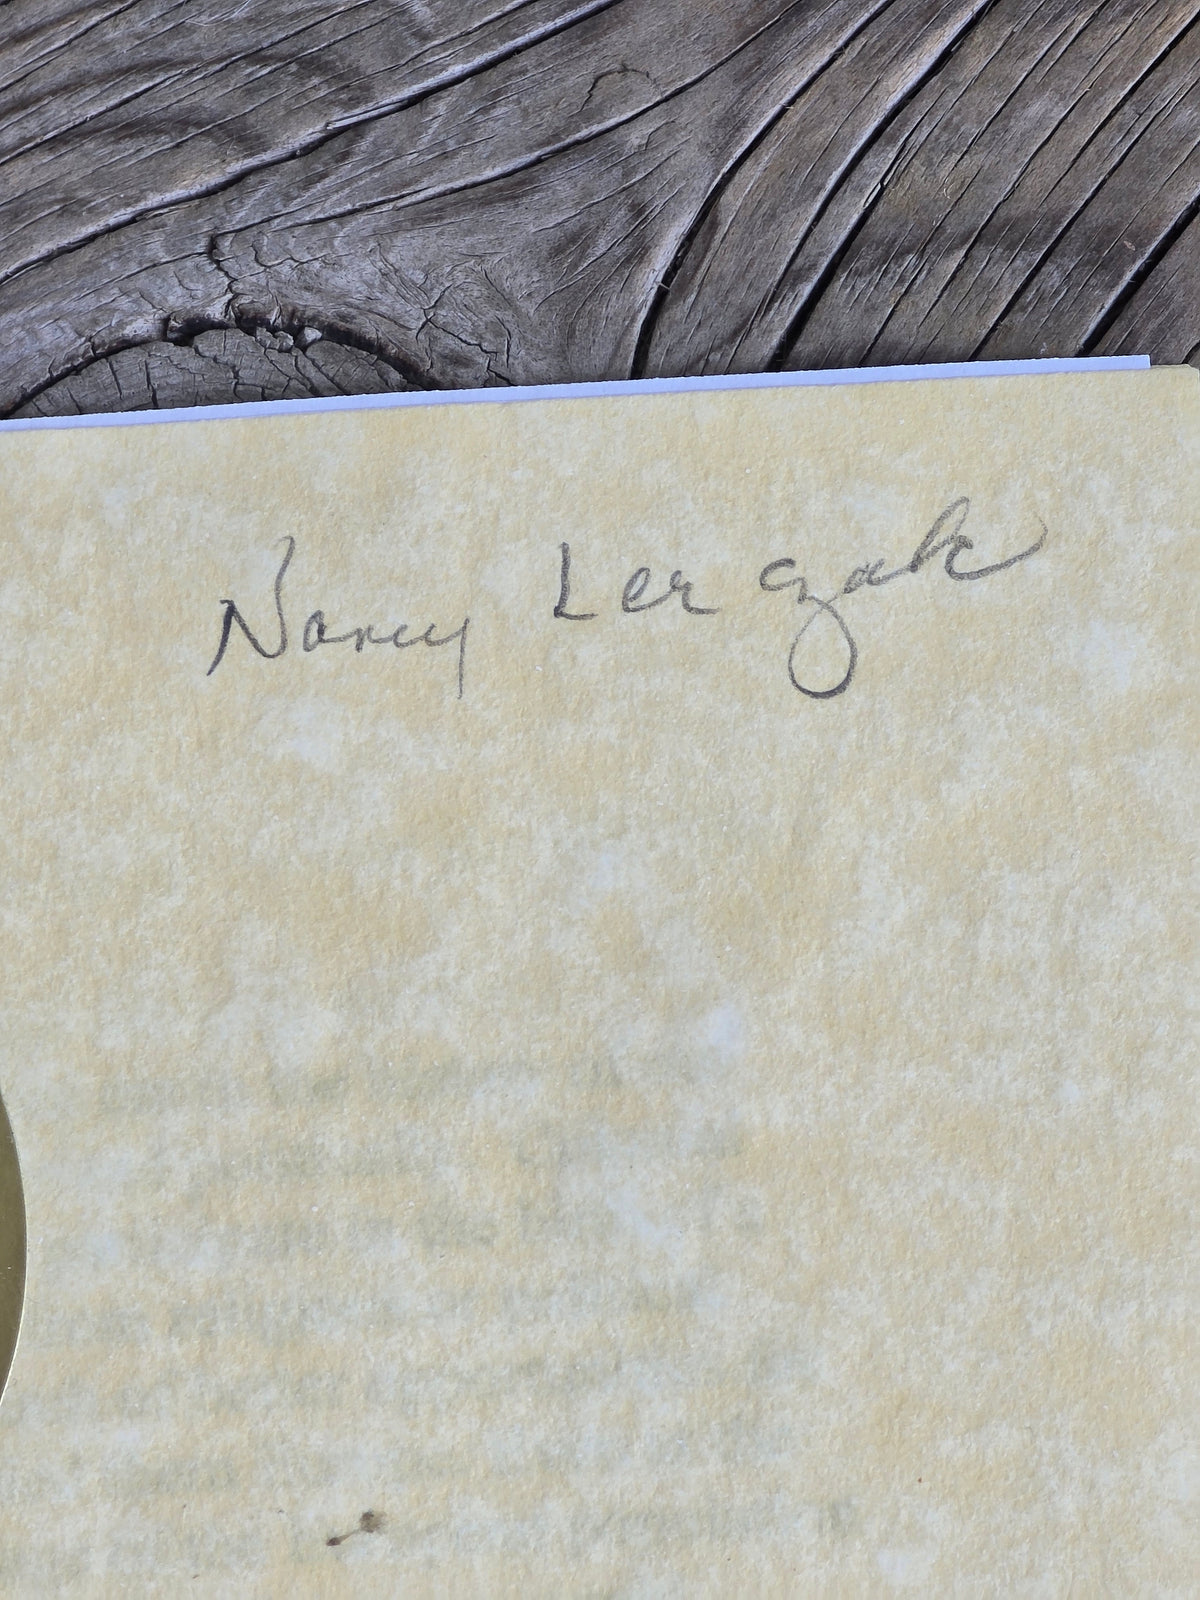 Nancy Lerczak